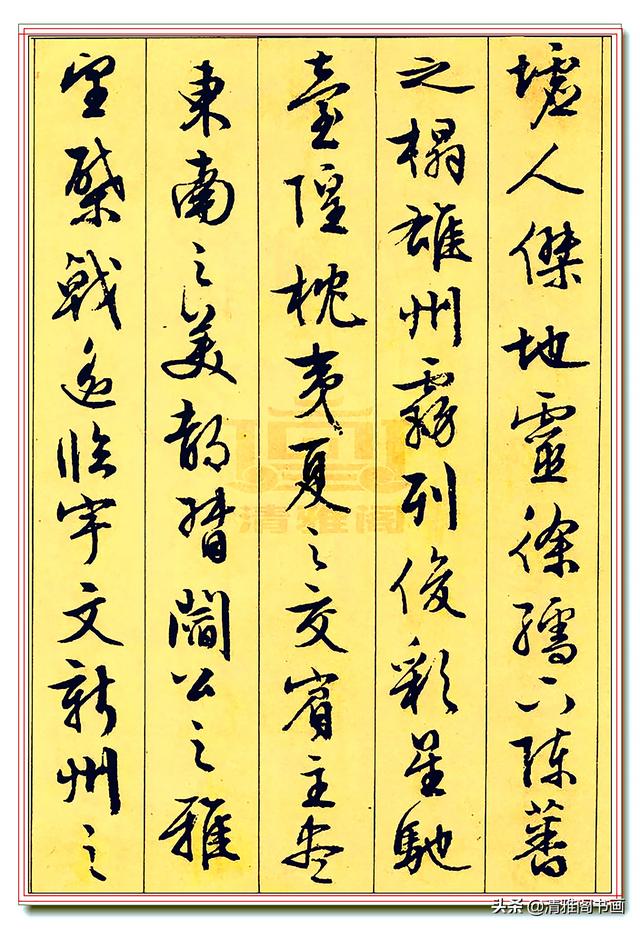 墟人傑地靈徐孺下陳蕃
之榻雄州霧列俊彩星馳
臺隍枕夷夏之交賓主盡
東南之美都督閻公之雅
望棨戟遙臨宇文新州之
清雅阁
头条 @清雅阁书画